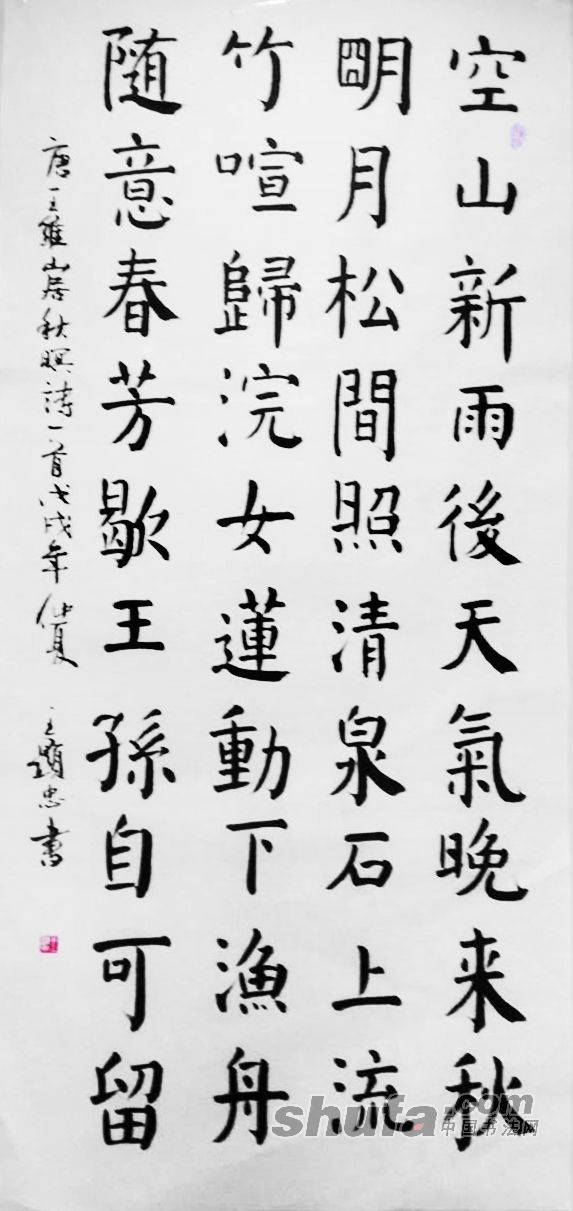 空山新雨後天氣晚来秋
明月松間照清泉石上流
竹喧歸浣女蓮動下漁舟
随意春芳歇王孫自可留
唐王維山居秋暝詩一首戊戌年仲夏 王顯忠書
shufa.com
中国书法网